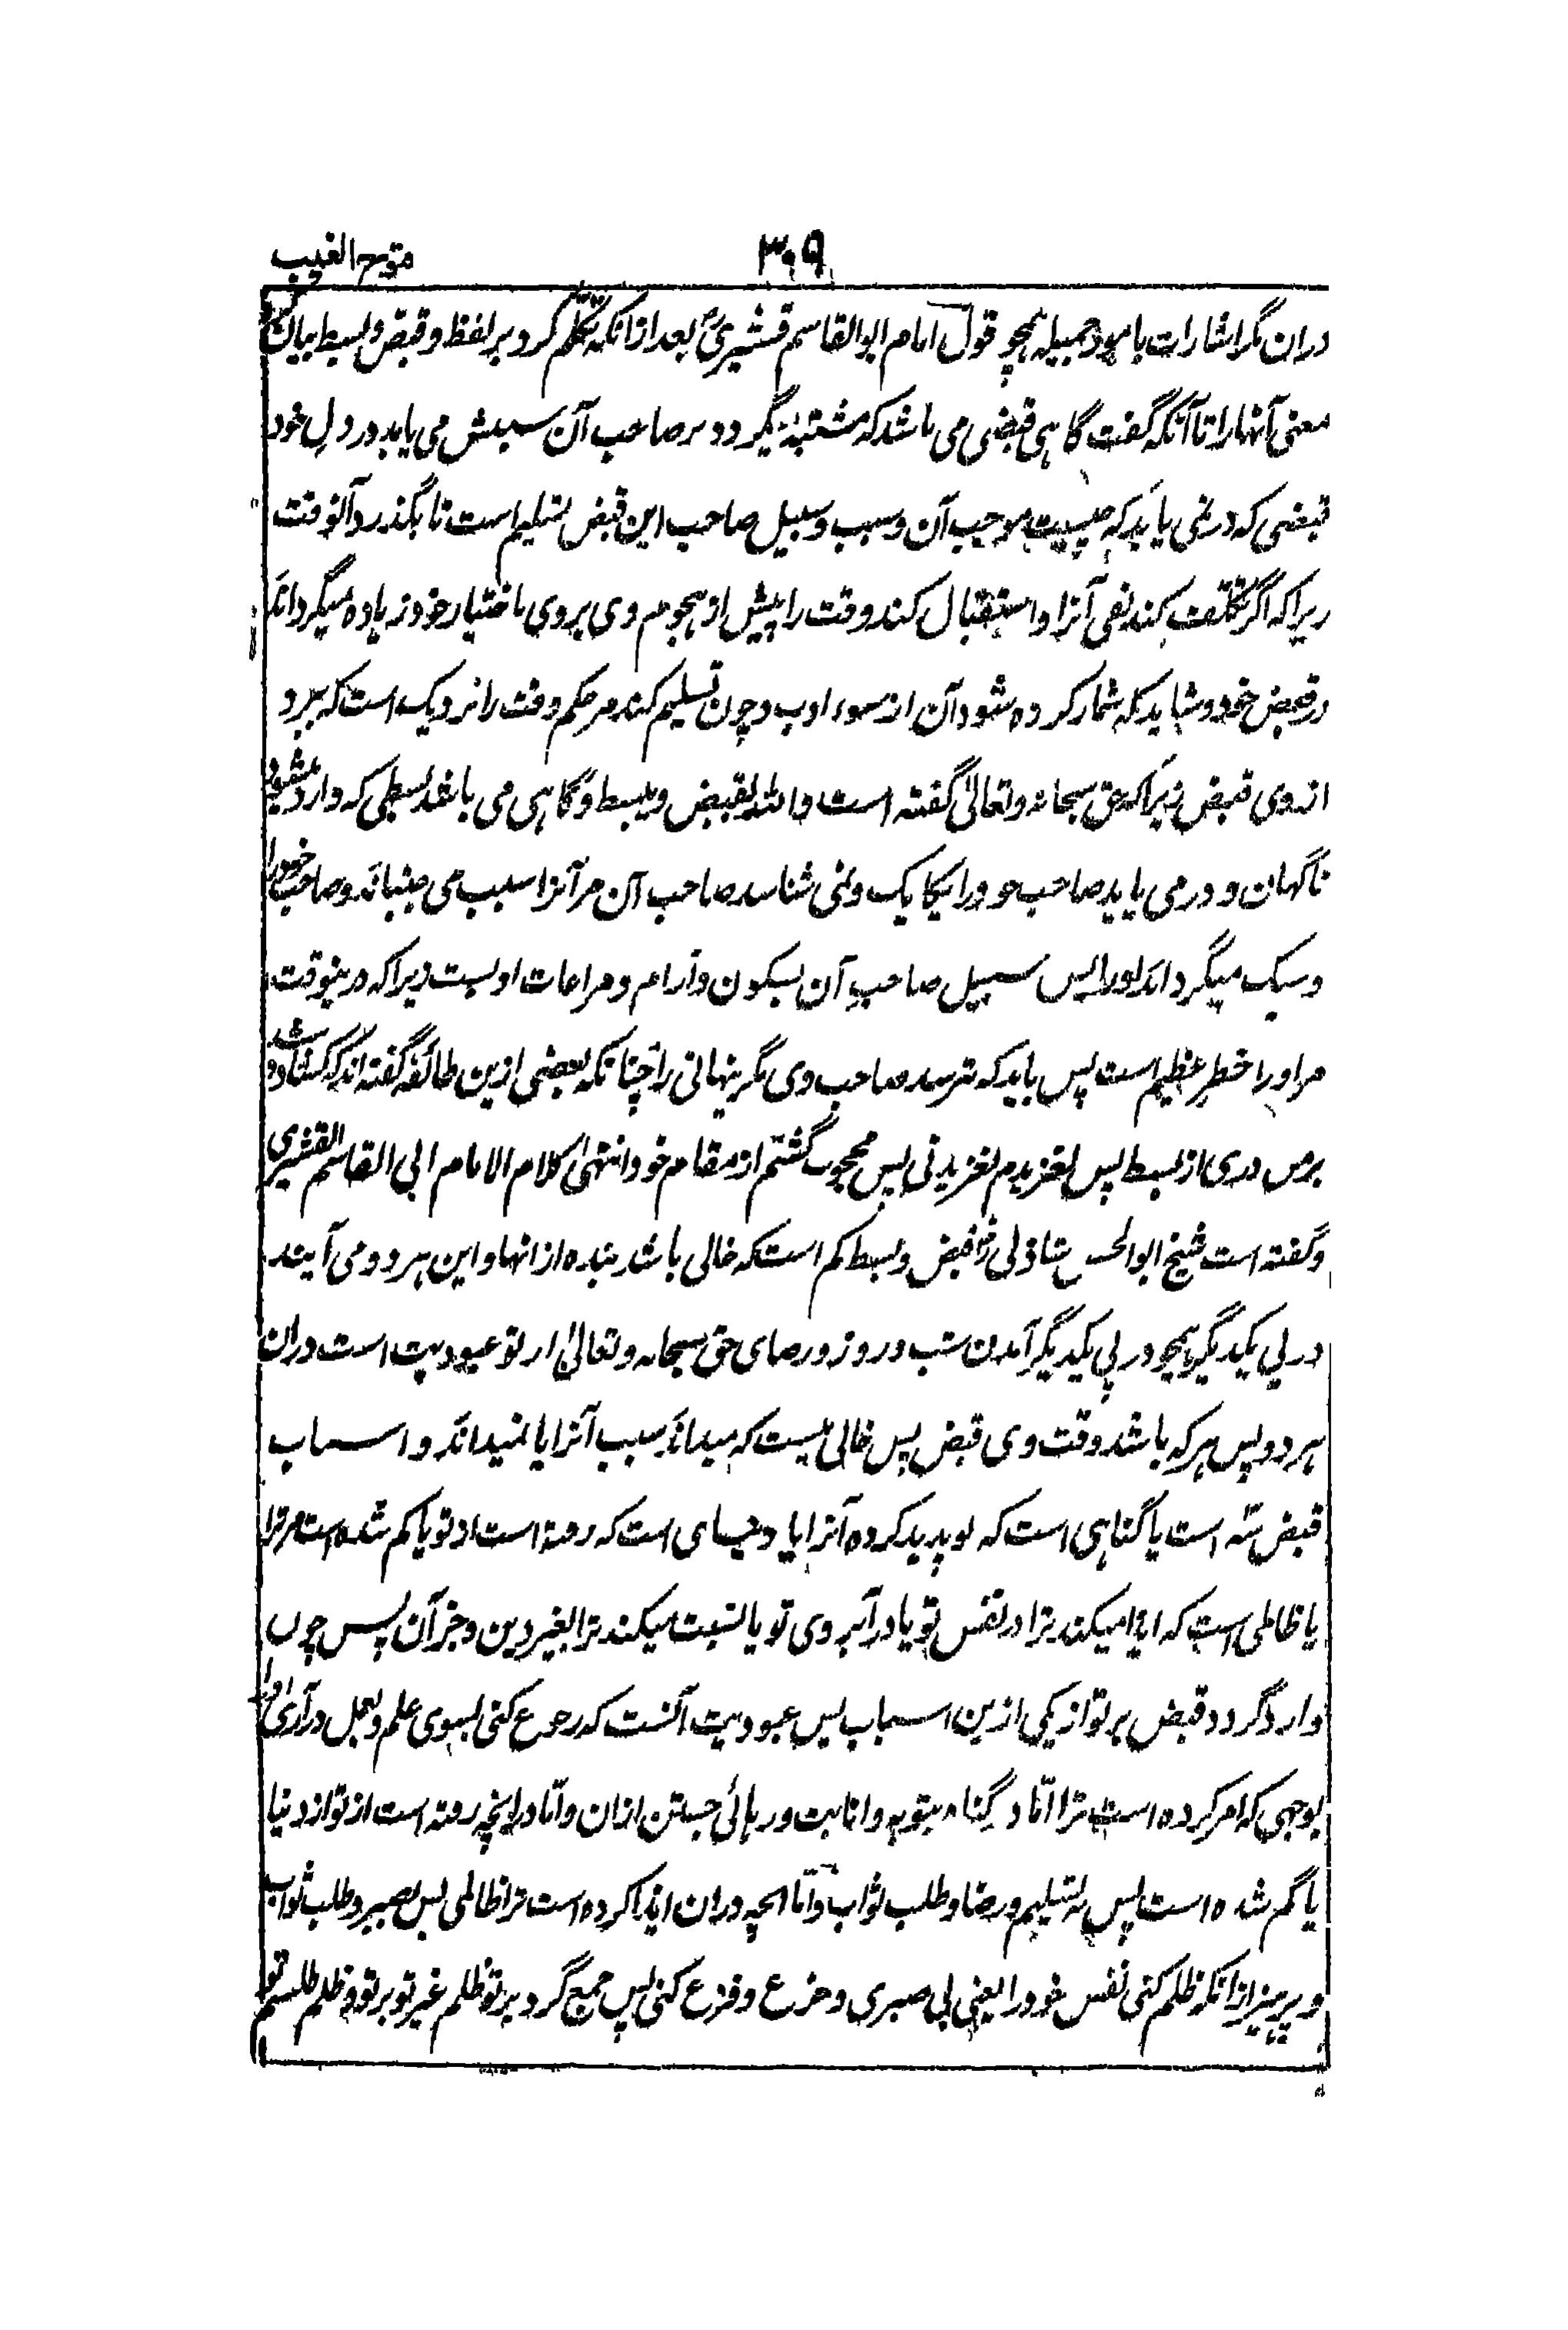 ۳۰۹
دران مگر اشارات بامور جمیله همچو قول امام ابوالقاسم قشیریؒ بعد ازانکه تکلّم کرد بر لفظ و قبض و بسط بیان
معنی آنها را تا آنکه گفت گاهی قبضی می باشد که مشتبه میگردد بر صاحب آن سببش می یابد در دل خود
قبضی که در نمی یابد که چیست موجب آن و سبب و سبیل صاحب این قبض تسلیم است تا بگذرد آنوقت
زیراکه اگر تکلّف کند نفی آنرا و استقبال کند وقت را پیش از هجوم وی بروی باختیار خود زیاده میگرداند
در قبض خود و شاید که شمار کرده شود آن از سوء ادب و چون تسلیم کند مر حکم وقت را نزدیک است که برود
از وی قبض زیراکه حق سبحانه و تعالیٰ گفته است والله یقبض و یبسط و گاهی می باشد بسطی که وارد میشود
ناگهان و در می یابد صاحب خود را یکایک و نمی شناسد صاحب آن مر آنرا سبب می جنباند صاحب خود را
و سبک میگرداند او را پس سبیل صاحب آن بسکون و آرام و مراعات اوست زیراکه درینوقت
مر او را خطر عظیم است پس باید که بترسد صاحب وی مگر پنهانی را چنانکه بعضی ازین طائفه گفته اند که کشاده شد
بر من دری از بسط پس لغزیدم لغزیدنی پس محجوب گشتم از مقام خود انتهیٰ کلام الامام ابی القاسم القشیری
و گفته است شیخ ابوالحسن شاذلی قبض و بسط کم است که خالی باشد بنده از انها و این هر دو می آیند
در پی یکدیگر همچو در پی یکدیگر آمدن شب و روز و رضای حق سبحانه و تعالیٰ از تو عبودیت است دران
هر دو پس هر که باشد وقت وی قبض پس خالی نیست که میداند سبب آنرا یا نمیداند و اسباب
قبض سه است یا گناهی است که نو پدید کرده آنرا یا دنیای است که رفته است از تو یا کم شده است مر ترا
یا ظالمی است که ایذا میکند ترا در نفس تو یا در آبروی تو یا نسبت میکند ترا بغیر دین و جز آن پس چون
وارد گردد قبض بر تو از یکی ازین اسباب پس عبودیت آنست که رجوع کنی بسوی علم و بعمل در آری
بوجهی که امر کرده است ترا امّا در گناه بتوبه و انابت و رهائی جستن ازان و امّا در انچه رفته است از تو از دنیا
یا گم شده است پس به تسلیم و رضا و طلب ثواب و امّا انچه دران ایذا کرده است ترا ظالمی پس بصبر و طلب ثواب
و بپرهیز از انکه ظلم کنی نفس خود را یعنی بی صبری و جزع و فزع کنی پس جمع گردد بر تو ظلم غیر تو بر تو و ظلم